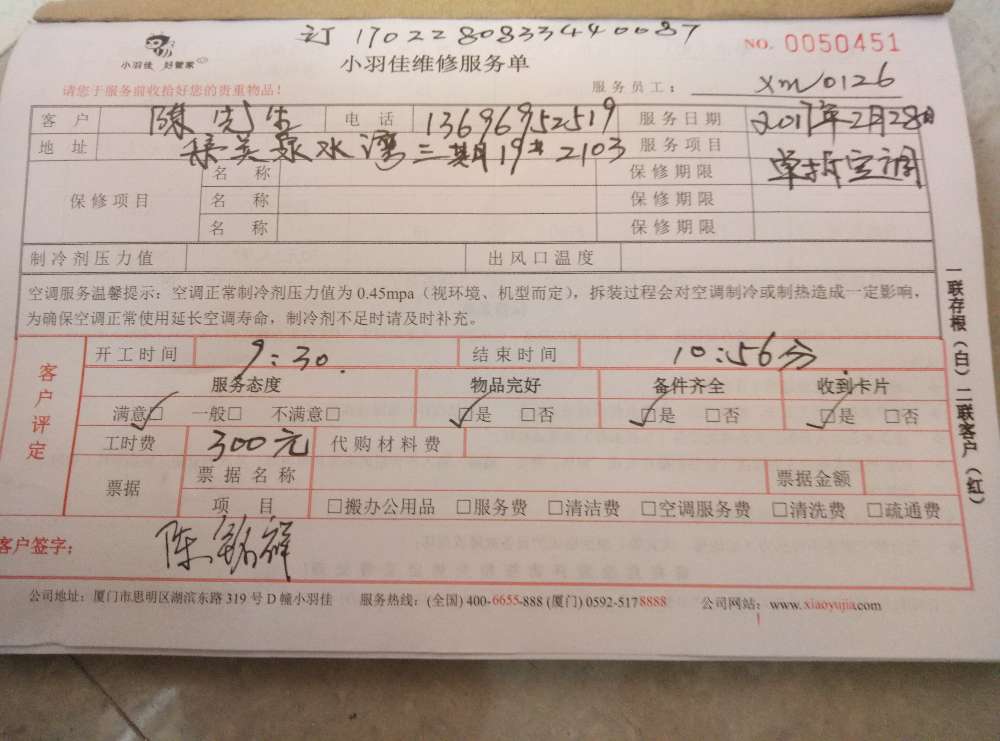 订 1702280833440087
NO. 0050451
小羽佳 好管家
小羽佳维修服务单
请您于服务前收拾好您的贵重物品！
服务员工： xm0126
客户 陈先生 电话 13696952519 服务日期 2017年2月28日
地址 集美泉水湾三期19#2103 服务项目 单拆空调
保修项目 名称 保修期限
名称 保修期限
名称 保修期限
制冷剂压力值 出风口温度
空调服务温馨提示：空调正常制冷剂压力值为 0.45mpa（视环境、机型而定），拆装过程会对空调制冷或制热造成一定影响，
为确保空调正常使用延长空调寿命，制冷剂不足时请及时补充。
客户评定
开工时间 9:30. 结束时间 10:56分
服务态度 物品完好 备件齐全 收到卡片
满意□ 一般□ 不满意□ □是 □否 □是 □否 □是 □否
工时费 300元 代购材料费
票据 票据名称 票据金额
项目 □搬办公用品 □服务费 □清洁费 □空调服务费 □清洗费 □疏通费
客户签字： 陈铭祥
公司地址：厦门市思明区湖滨东路 319 号 D 幢小羽佳 服务热线：(全国) 400-6655-888 (厦门) 0592-5178888 公司网站：www.xiaoyujia.com
一联存根（白）二联客户（红）